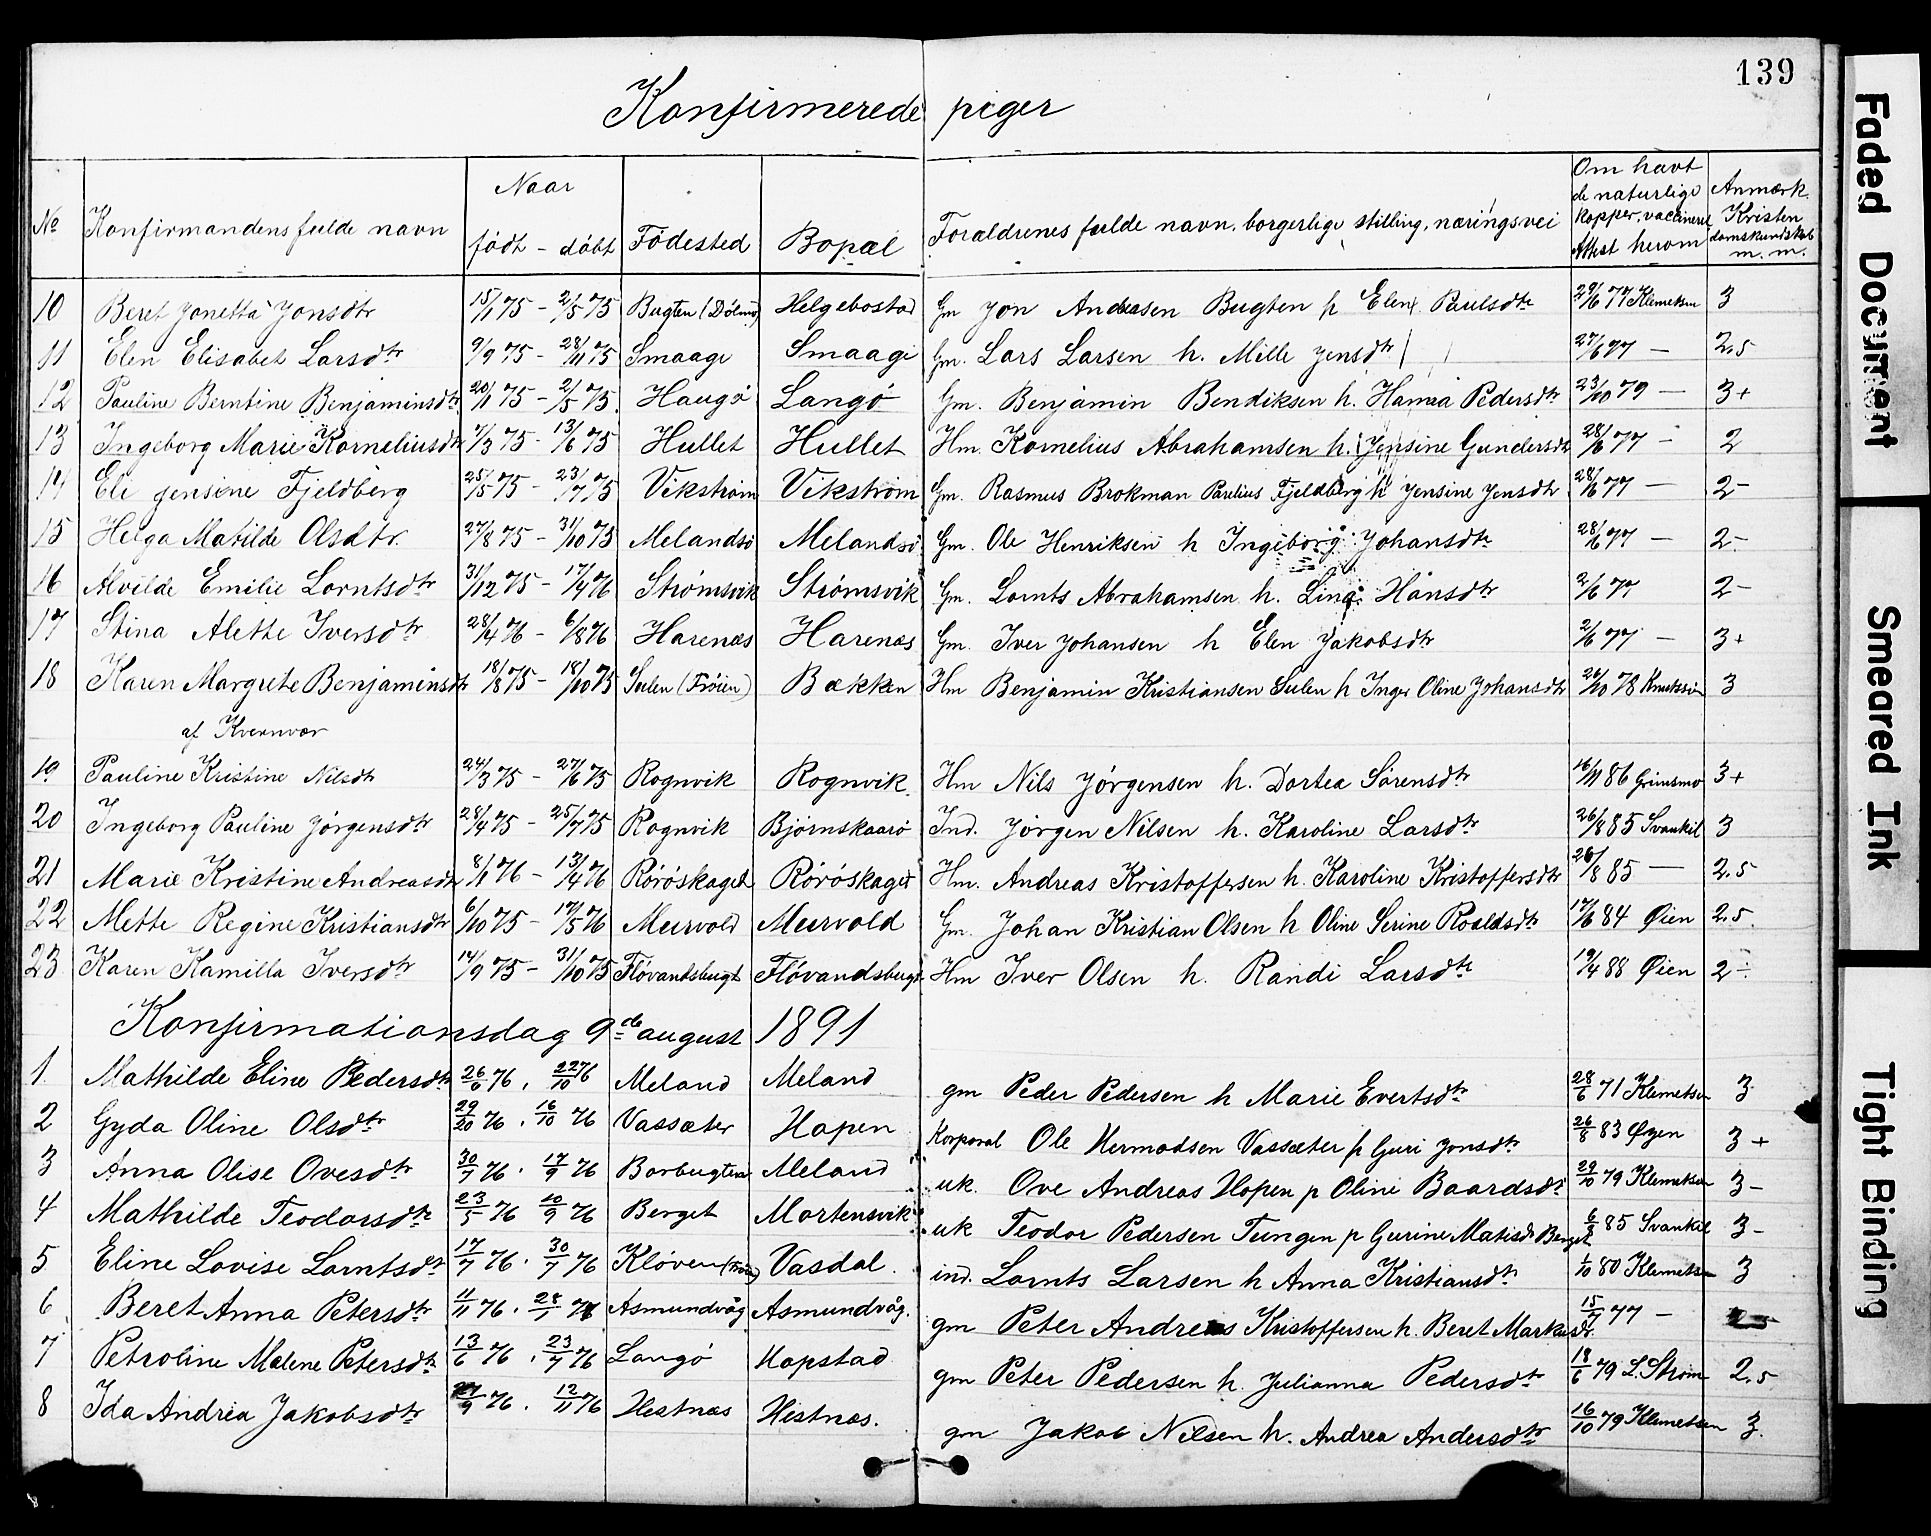 139
Konfirmerede piger
No Konfirmandens fulde navn Naar født - døbt Fødested Bopæl Forældrenes fulde navn, borgerlige stilling, næringsvei Om havt de naturlige kopper, vaccineret Attest herom Anmærk. Kristendomskundskab m. m.
10 Beret Jonetta Jonsdtr 15/1 75 - 2/5 75 Bugten (Dolmø) Helgebostad Gm Jon Andreasen Bugten h Elen Paulsdtr 29/6 77 Klemetsen 3
11 Elen Elisabet Larsdtr 9/9 75 - 28/11 75 Smaage Smaage Gm. Lars Larsen h. Mille Jensdtr 27/6 77 — 2,5
12 Pauline Berntine Benjaminsdtr 20/1 75 - 2/5 75 Haugø Langø Gm. Benjamin Bendiksen h. Hanna Pedersdtr 23/10 79 — 3+
13 Ingeborg Marie Korneliusdtr 7/3 75 - 13/6 75 Hullet Hullet Hm. Kornelius Abrahamsen h. Jensine Gundersdtr 28/6 77 — 2
14 Eli Jensine Fjeldberg 25/5 75 - 23/7 75 Vikstrøm Vikstrøm Gm. Rasmus Brokman Paulius Fjeldberg h Jensine Jensdtr 28/6 77 — 2-
15 Helga Matilde Olsdtr. 27/8 75 - 31/10 75 Melandsø Melandsø Gm. Ole Henriksen h Ingeborg Johansdtr 28/6 77 — 2-
16 Alvilde Emilie Lorntsdtr 31/12 75 - 17/4 76 Strømsvik Strømsvik Gm. Lornts Abrahamsen h. Lina Hansdtr 2/6 77 2-
17 Stina Alette Iversdtr 28/4 76 - 6/8 76 Harenæs Harenæs Gm. Iver Johansen h Elen Jakobsdtr 2/6 77 — 3+
18 Karen Margrete Benjaminsdtr 18/8 75 - 18/10 75 Sulen (Frøien) Bækken Hm Benjamin Kristiansen Sulen h Inger Oline Johansdtr 24/10 78 Knutssøn 3
af Kvernvær
19 Pauline Kristine Nilsdtr 24/3 75 - 27/6 75 Rognvik Rognvik Hm Nils Jørgensen h. Dortea Sørensdtr 16/11 86 Grinsmo 3+
20 Ingeborg Pauline Jørgensdtr 28/4 75 - 25/7 75 Rognvik Bjørnskaarø Ind. Jørgen Nilsen h. Karoline Larsdtr 26/8 85 Svankil 3
21 Marie Kristine Andreasdtr 8/1 76 - 13/4 76 Rørøskaget Rørøskaget Hm. Andreas Kristoffersen h. Karoline Kristoffersdtr 26/8 85 — 2,5
22 Mette Regine Kristiansdtr 6/10 75 - 17/5 76 Murvold Murvold Gm. Johan Kristian Olsen h Oline Serine Roaldsdtr 17/6 84 Øien 2,5
23 Karen Kamilla Iversdtr 14/9 75 - 31/10 75 Fløvandsbugt Fløvandsbugt Hm Iver Olsen h. Randi Larsdtr 19/4 88 Øien 2-
Konfirmationsdag 9de august 1891
1 Mathilde Eline Pedersdtr 26/6 76, 22/10 76 Meland Meland gm Peder Pedersen h Marie Evertsdtr 28/6 71 Klemetsen 3
2 Gyda Oline Olsdtr 29/20 76, 16/10 76 Vassæter Hopen Korporal Ole Hermodsen Vassæter h Guri Jonsdtr 26/8 83 Øyen 3+
3 Anna Olise Ovesdtr 30/7 76, 17/9 76 Borbugten Meland uk. Ove Andreas Hopen p Oline Baardsdtr 29/10 79 Klemetsen 3-
4 Mathilde Teodorsdtr 23/5 76 10/9 76 Berget Mortensvik uk Teodor Pedersen Tungen p Gurine Matisdtr Berget 6/8 85 Svankil 3-
5 Eline Lovise Lorntsdtr 17/7 76, 30/7 76 Kløven Vasdal ind. Lornts Larsen h Anna Kristiansdtr 1/10 80 Klemetsen 3
6 Beret Anna Petersdtr 11/11 76, 28/1 Asmundvåg Asmundvåg. gm Peter Andreas Kristoffersen h. Beret Markusdtr. 15/7 77 —
7 Petroline Malene Petersdtr 13/6 76, 23/7 76 Langø Hopstad gm Peter Pedersen h. Julianna Pedersdtr 18/6 79 L. Strøm 2,5
8 Ida Andrea Jakobsdtr 27/9 76, 12/11 76 Hestnæs Hestnæs. gm Jakob Nilsen h. Andrea Andersdtr 16/10 79 Klemetsen 3.
Faded Document
Smeared Ink
Tight Binding